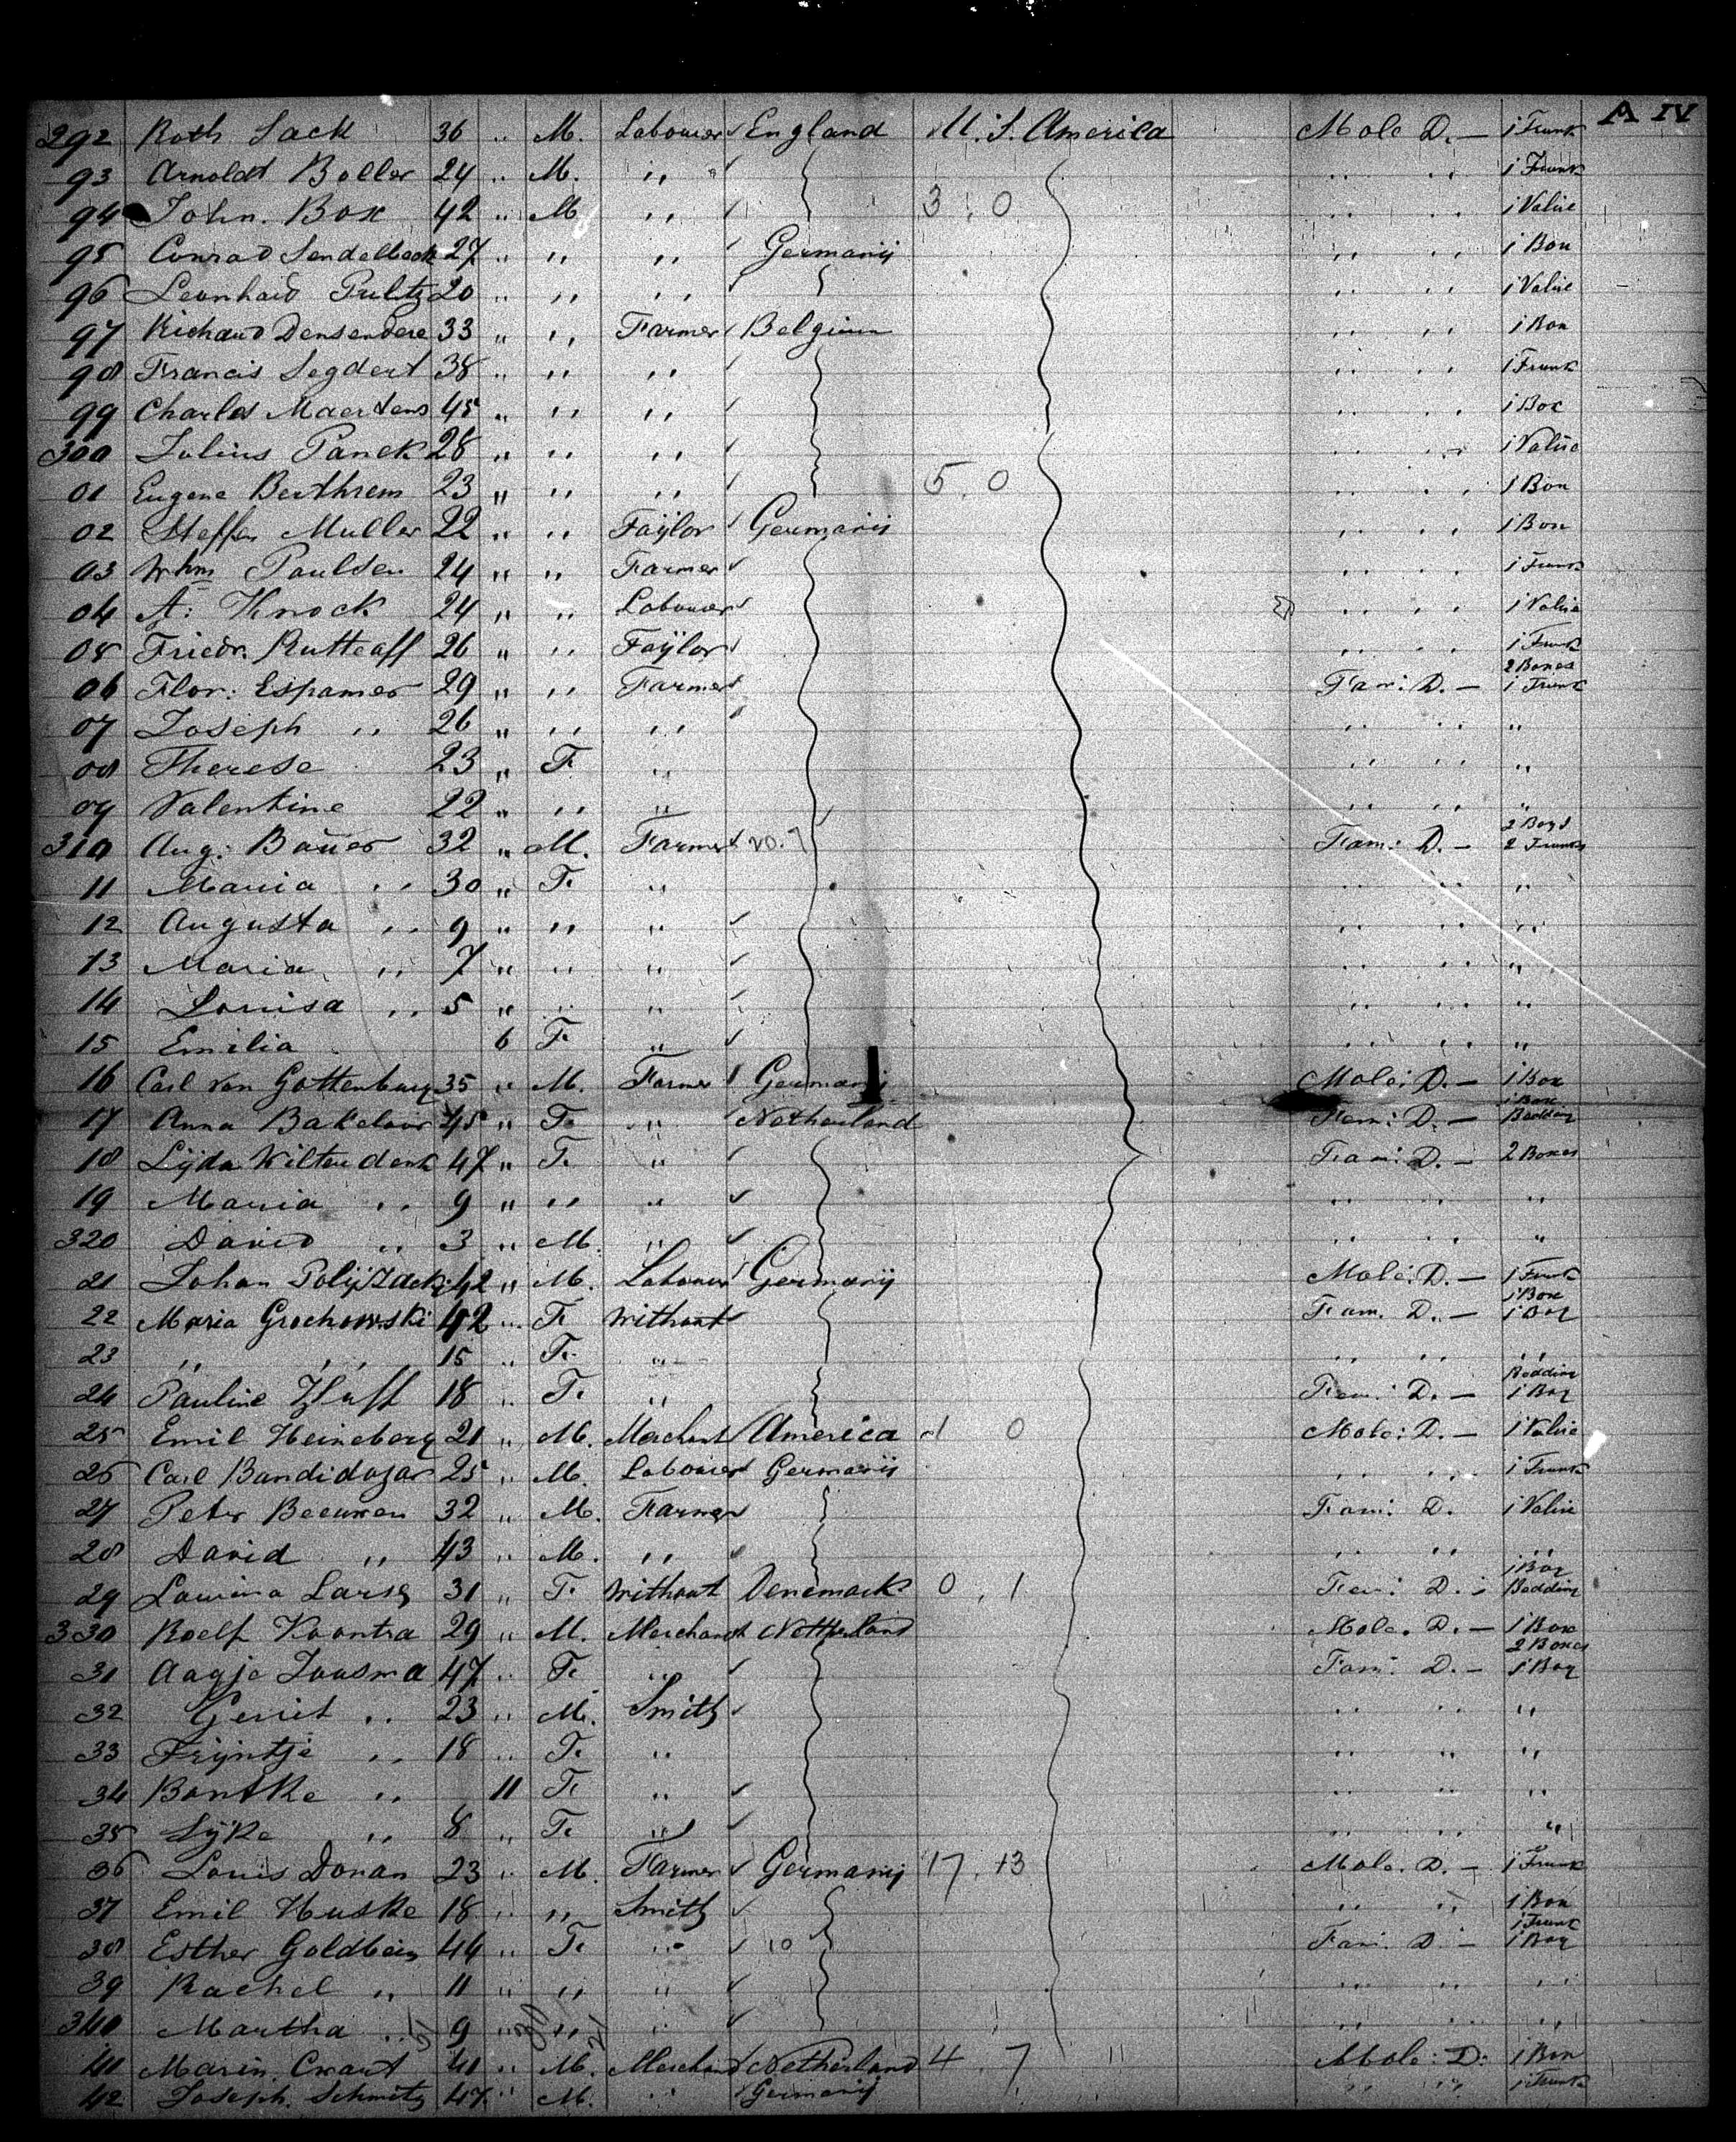 A IV
292 Roth Sack 36 " M. Labourer England U. S. America Male D. — 1 Trunk
93 Arnoldt Boller 24 " M. " " " 1 Trunk
94 John. Box 42 " M " 3 . 0 " " 1 Valise
95 Conrad Sendelbeck 27 " " " Germanij " " 1 Box
96 Leonhard Pultz 20 " " " " " 1 Valise
97 Richard Densendere 33 " " Farmer Belgium " " 1 Box
98 Francis Segdert 38 " " " " " 1 Trunk
99 Charles Maertens 45 " " " " " 1 Box
300 Julius Panek 28 " " " " " 1 Valise
01 Eugene Berthrem 23 " " " 5 . 0 " " 1 Box
02 Steffen Muller 22 " " Taÿlor Germanij " " 1 Box
03 Whm Paulsen 24 " " Farmer " " 1 Trunk
04 A: Knock 24 " " Labourer " " 1 Valise
05 Friedr. Rutteaff 26 " " Taÿlor " " 1 Trunk
06 Flor: Espamer 29 " " Farmer Fam: D. — 2 Boxes 1 Trunk
07 Joseph " 26 " " " " " "
08 Therese 23 " F. " " " "
09 Valentine 22 " " " " " "
310 Aug: Bauer 32 " M. Farmer 20.7 Fam: D. — 2 Bags 2 Trunks
11 Maria " 30 " F. " " " "
12 Augusta " 9 " " " " " "
13 Maria " 7 " " " " " "
14 Louisa " 5 " " " " " "
15 Emilia 6 F. " " " "
16 Carl von Gottenburg 35 " M. Farmer Germanij Male: D. — 1 Box
17 Anna Bakelaar 45 " F. " Netherland Fem: D. — 1 Box Bedding
18 Lijda Wiltendenk 47 " F. " Fam: D. — 2 Boxes
19 Maria " 9 " " " " " "
320 David " 3 " M. " " " "
21 Johan 42 " M. Labourer Germanij Male: D. — 1 Trunk
22 Maria Grochowski 42 " F. Without Fam. D. — 1 Box 1 Bag
23 " " 15 " F. " " " "
24 Pauline Huff 18 " F. " Fem: D. — Bedding 1 Bag
25 Emil Heineberg 21 " M. Merchant America 1 0 Male: D. — 1 Valise
26 Carl Bandidazar 25 " M. Labourer Germanij " " 1 Trunk
27 Peter Beeumen 32 " M. Farmer Fam: D. 1 Valise
28 David " 43 " M. " " " "
29 Lawina Larsg 31 " F. Without Denemark 0 . 1 Fem: D. — 1 Bag Bedding
330 Roelf Koontra 29 " M. Merchant Netherland Male. D. — 1 Box
31 Aagje Jousma 47 " F. " Fam: D. — 2 Boxes 1 Bag
32 Gerrit " 23 " M. Smith " " "
33 Frijntje " 18 " F. " " " "
34 Bontke " 11 F. " " " "
35 Sijke " 8 " F. " " " "
36 Louis Donan 23 " M. Farmer Germanij 17 . 13 Male. D. — 1 Trunk
37 Emil Huske 18 " " Smith " " 1 Box
38 Esther Goldbein 44 " F. " 10 Fam. D — 1 Trunk 1 Bag
39 Rachel " 11 " " " " " "
340 Martha " 9 " " " " " "
41 Marin. Cwart 41 " M. Merchant Netherland 4 . 7 Male: D: 1 Box
42 Joseph. Schmitz 47 " M. " Germanij " " 1 Trunk